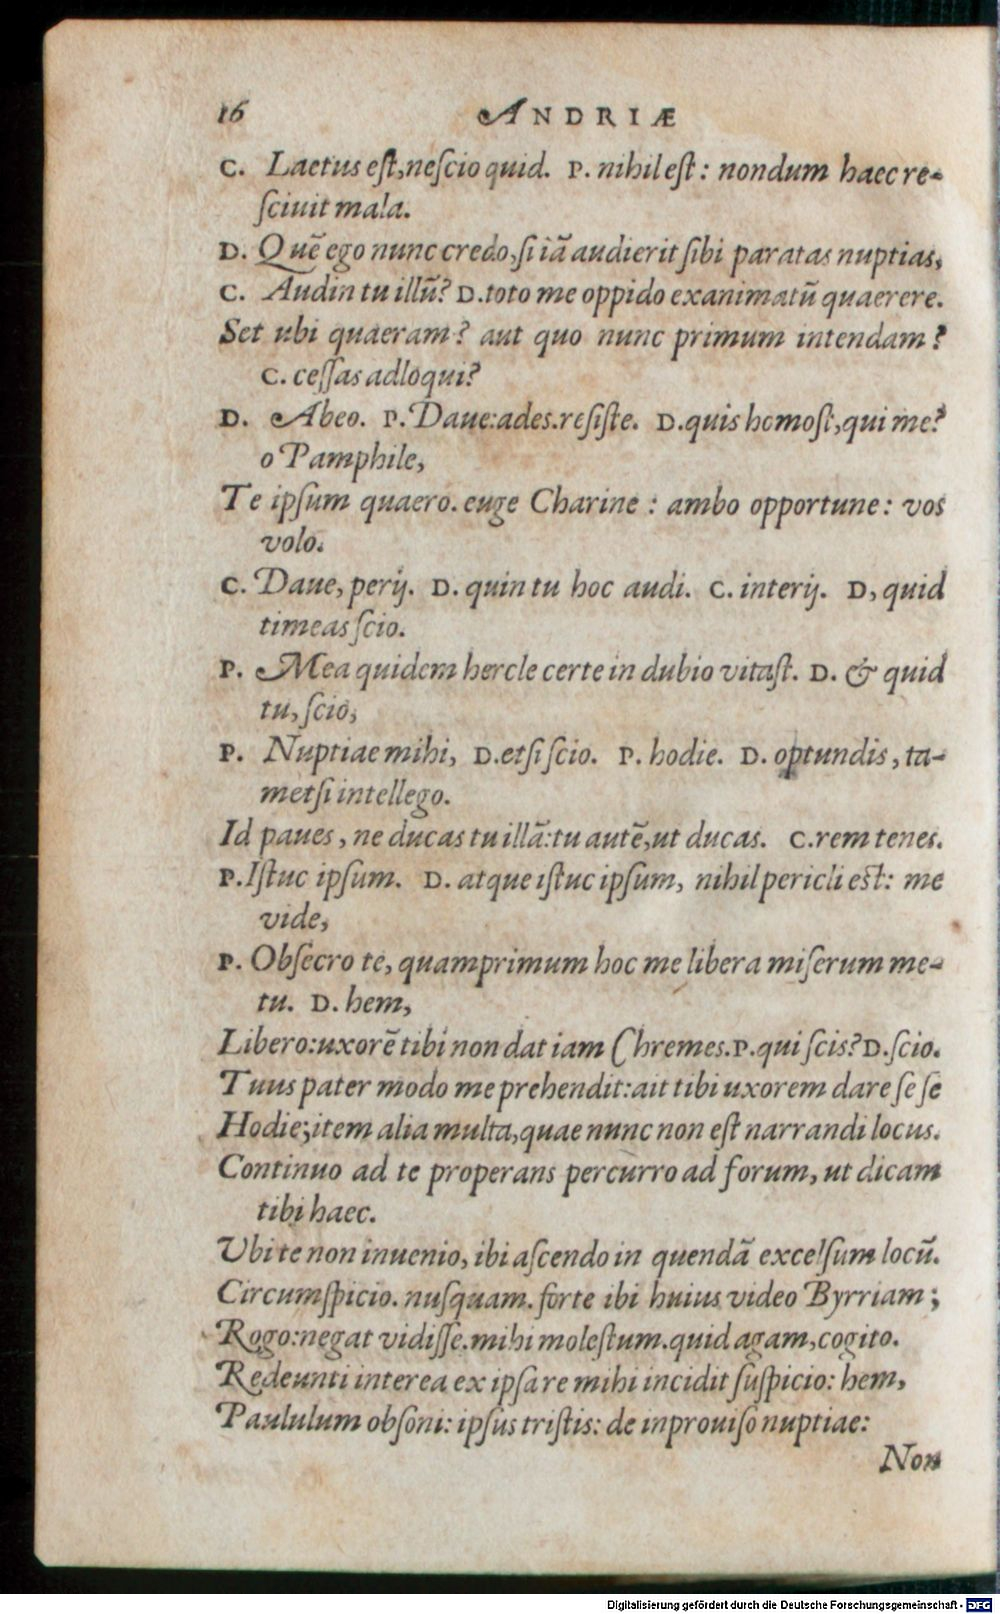 16 ANDRIÆ
C. Laetus est, nescio quid. P. nihil est: nondum haec re-
sciuit mala.
D. Quẽ ego nunc credo, si iã audierit sibi paratas nuptias,
C. Audin tu illũ? D. toto me oppido exanimatũ quaerere.
Set ubi quaeram? aut quo nunc primum intendam?
C. cessas adloqui?
D. Abeo. P. Daue: ades. resiste. D. quis homost, qui me?
o Pamphile,
Te ipsum quaero. euge Charine: ambo opportune: vos
volo.
C. Daue, perij. D. quin tu hoc audi. C. interij. D, quid
timeas scio.
P. Mea quidem hercle certe in dubio vitast. D. & quid
tu, scio,
P. Nuptiae mihi, D. etsi scio. P. hodie. D. optundis, ta-
metsi intellego.
Id paues, ne ducas tu illã: tu autẽ, ut ducas. C. rem tenes.
P. Istuc ipsum. D. atque istuc ipsum, nihil pericli est: me
vide,
P. Obsecro te, quamprimum hoc me libera miserum me-
tu. D. hem,
Libero: uxorẽ tibi non dat iam Chremes. P. qui scis? D. scio.
Tuus pater modo me prehendit: ait tibi uxorem dare se se
Hodie; item alia multa, quae nunc non est narrandi locus.
Continuo ad te properans percurro ad forum, ut dicam
tibi haec.
Vbi te non inuenio, ibi ascendo in quendã excelsum locũ.
Circumspicio. nusquam. forte ibi huius video Byrriam;
Rogo: negat vidisse. mihi molestum. quid agam, cogito.
Redeunti interea ex ipsa re mihi incidit suspicio: hem,
Paululum obsoni: ipsus tristis: de inprouiso nuptiae:
Non
Digitalisierung gefördert durch die Deutsche Forschungsgemeinschaft - DFG